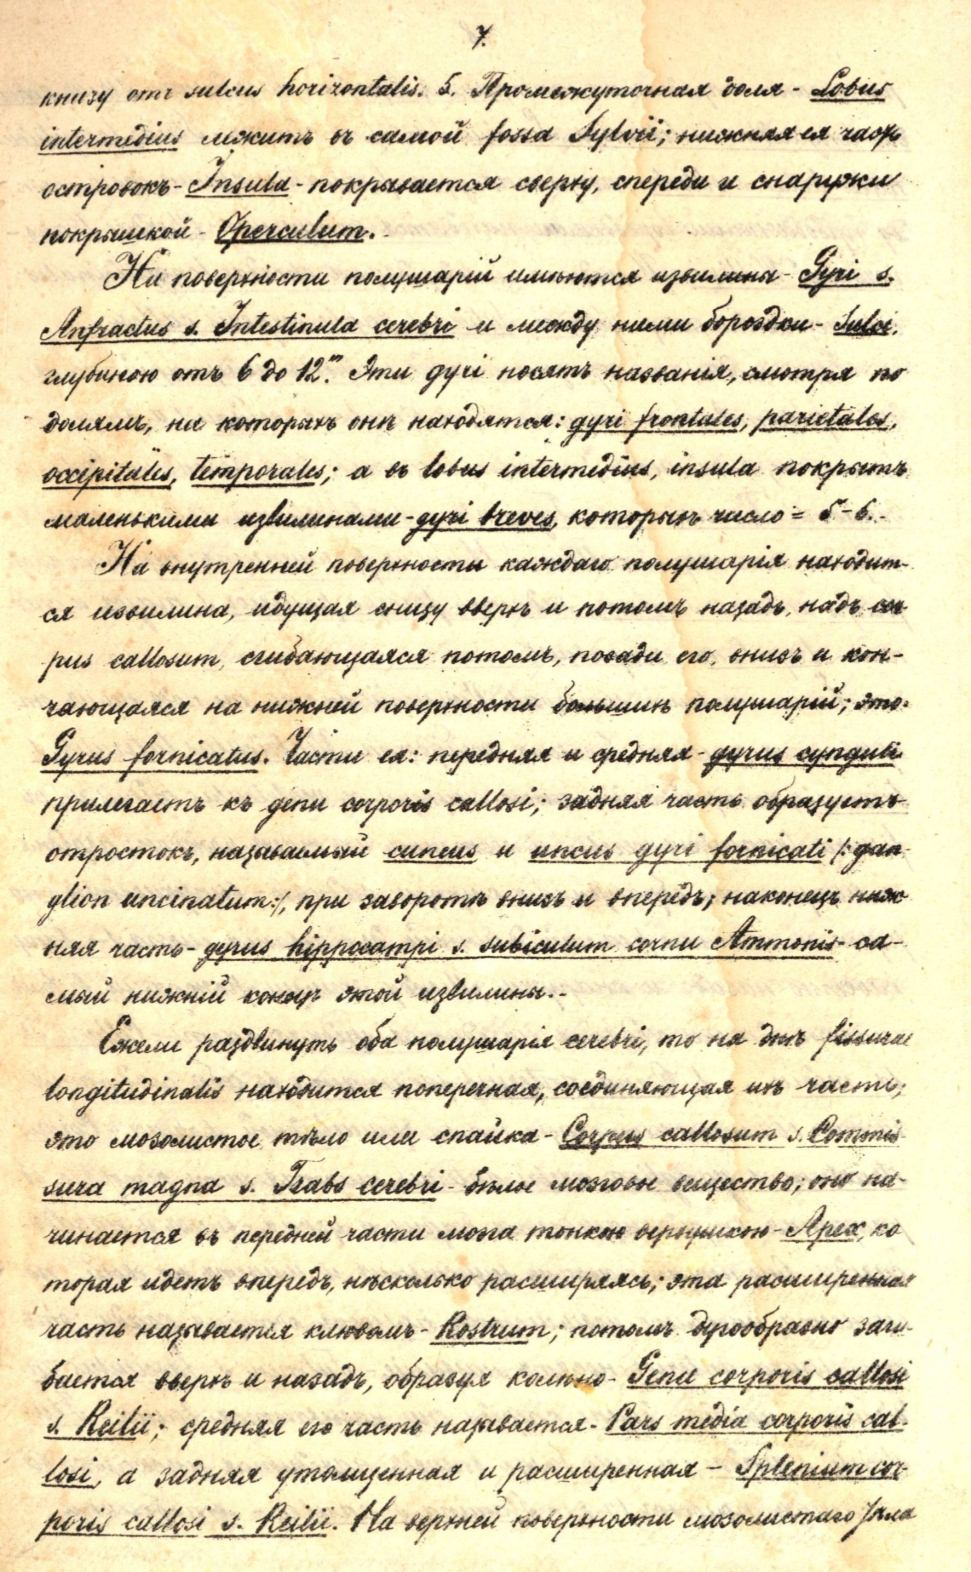 7.
книзу отъ sulcus horizontalis. 5. Промежуточная доля - Lobus
intermedius лежитъ въ самой fossa Sylvii; нижняя ея часть
островокъ - Insula - покрывается сверху, спереди и снаружи
покрышкой - Operculum.
На поверхности полушарій имѣются извилины - Gyri s.
Anfractus s. Intestinula cerebri и между ними бороздки - Sulci,
глубиною отъ 6 до 12'''. Эти gyri носятъ названія, смотря по
долямъ, на которыхъ онѣ находятся: gyri frontales, parietales,
occipitales, temporales; а въ lobus intermedius, insula покрытъ
маленькими извилинами - gyri breves, которыхъ число = 5-6.
На внутренней поверхности каждаго полушарія находит-
ся извилина, идущая снизу вверхъ и потомъ назадъ, надъ cor
pus callosum, сгибающаяся потомъ, позади его, внизъ и кон-
чающаяся на нижней поверхности большихъ полушарій; это-
Gyrus fornicatus. Части ея: передняя и средняя - gyrus cynguli
прилегаетъ къ genu corporis callosi; задняя часть образуетъ
отростокъ, называемый cuneus и uncus gyri fornicati /: gan
glion uncinatum:/, при заворотѣ внизъ и впередъ; наконецъ ниж
няя часть - gyrus hippocampi s. subiculum cornu Ammonis - са-
мый нижній конецъ этой извилины.-
Ежели раздвинуть оба полушарія cerebri, то на днѣ fissurae
longitudinalis находится поперечная, соединяющая ихъ часть;
это мозолистое тѣло или спайка - Corpus callosum s. Commis
sura magna s. Trabs cerebri - бѣлое мозговое вещество; оно на-
чинается въ передней части мозга тонкою верхушкою - Apex, ко
торая идетъ впередъ, нѣсколько расширяясь; эта расширенная
часть называется клювомъ - Rostrum; потомъ дугообразно заги-
бается вверхъ и назадъ, образуя колѣно - Genu corporis callosi
s. Reilii; средняя его часть называется - Pars media corporis cal-
losi, а задняя утолщенная и расширенная - Splenium cor
poris callosi s. Reilii. На верхней поверхности мозолистаго тѣла